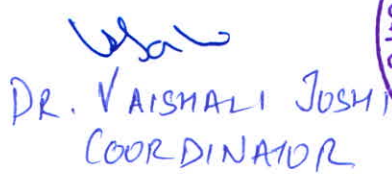 DR. VAISHALI JOSHI
COORDINATOR